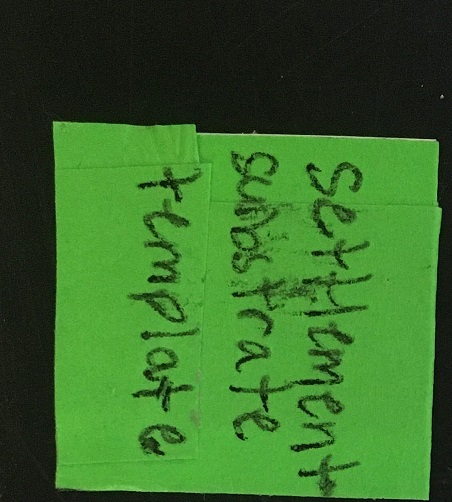 settlement
substrate
template